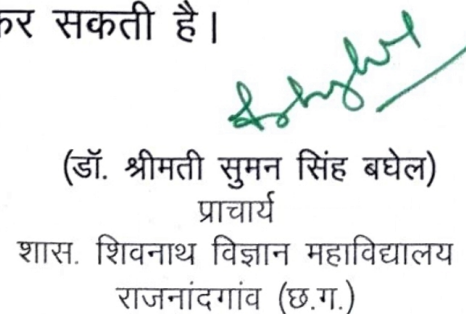 कर सकती है।
(डॉ. श्रीमती सुमन सिंह बघेल)
प्राचार्य
शास. शिवनाथ विज्ञान महाविद्यालय
राजनांदगांव (छ.ग.)